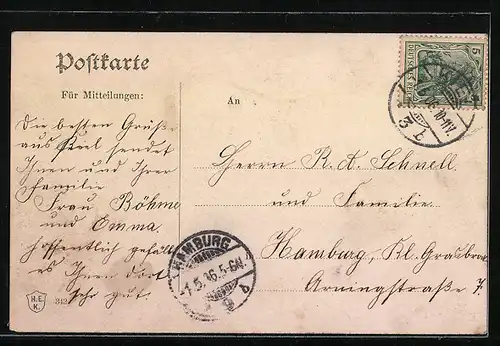 Postkarte
Für Mitteilungen:
An
Die besten Grüße
aus Kiel sendet
Ihnen und Ihrer
Familie
Frau Böhme
und Emma.
Hoffentlich gefällt
es Ihnen dort
sehr gut.
Herrn R. A. Schnell
und Familie
Hamburg, Kl. Grasbrook
Arningstraße 7.
5
DEUTSCHES REICH
KIEL
HAMBURG
1.5.06.5-6N.
H.E.
K.